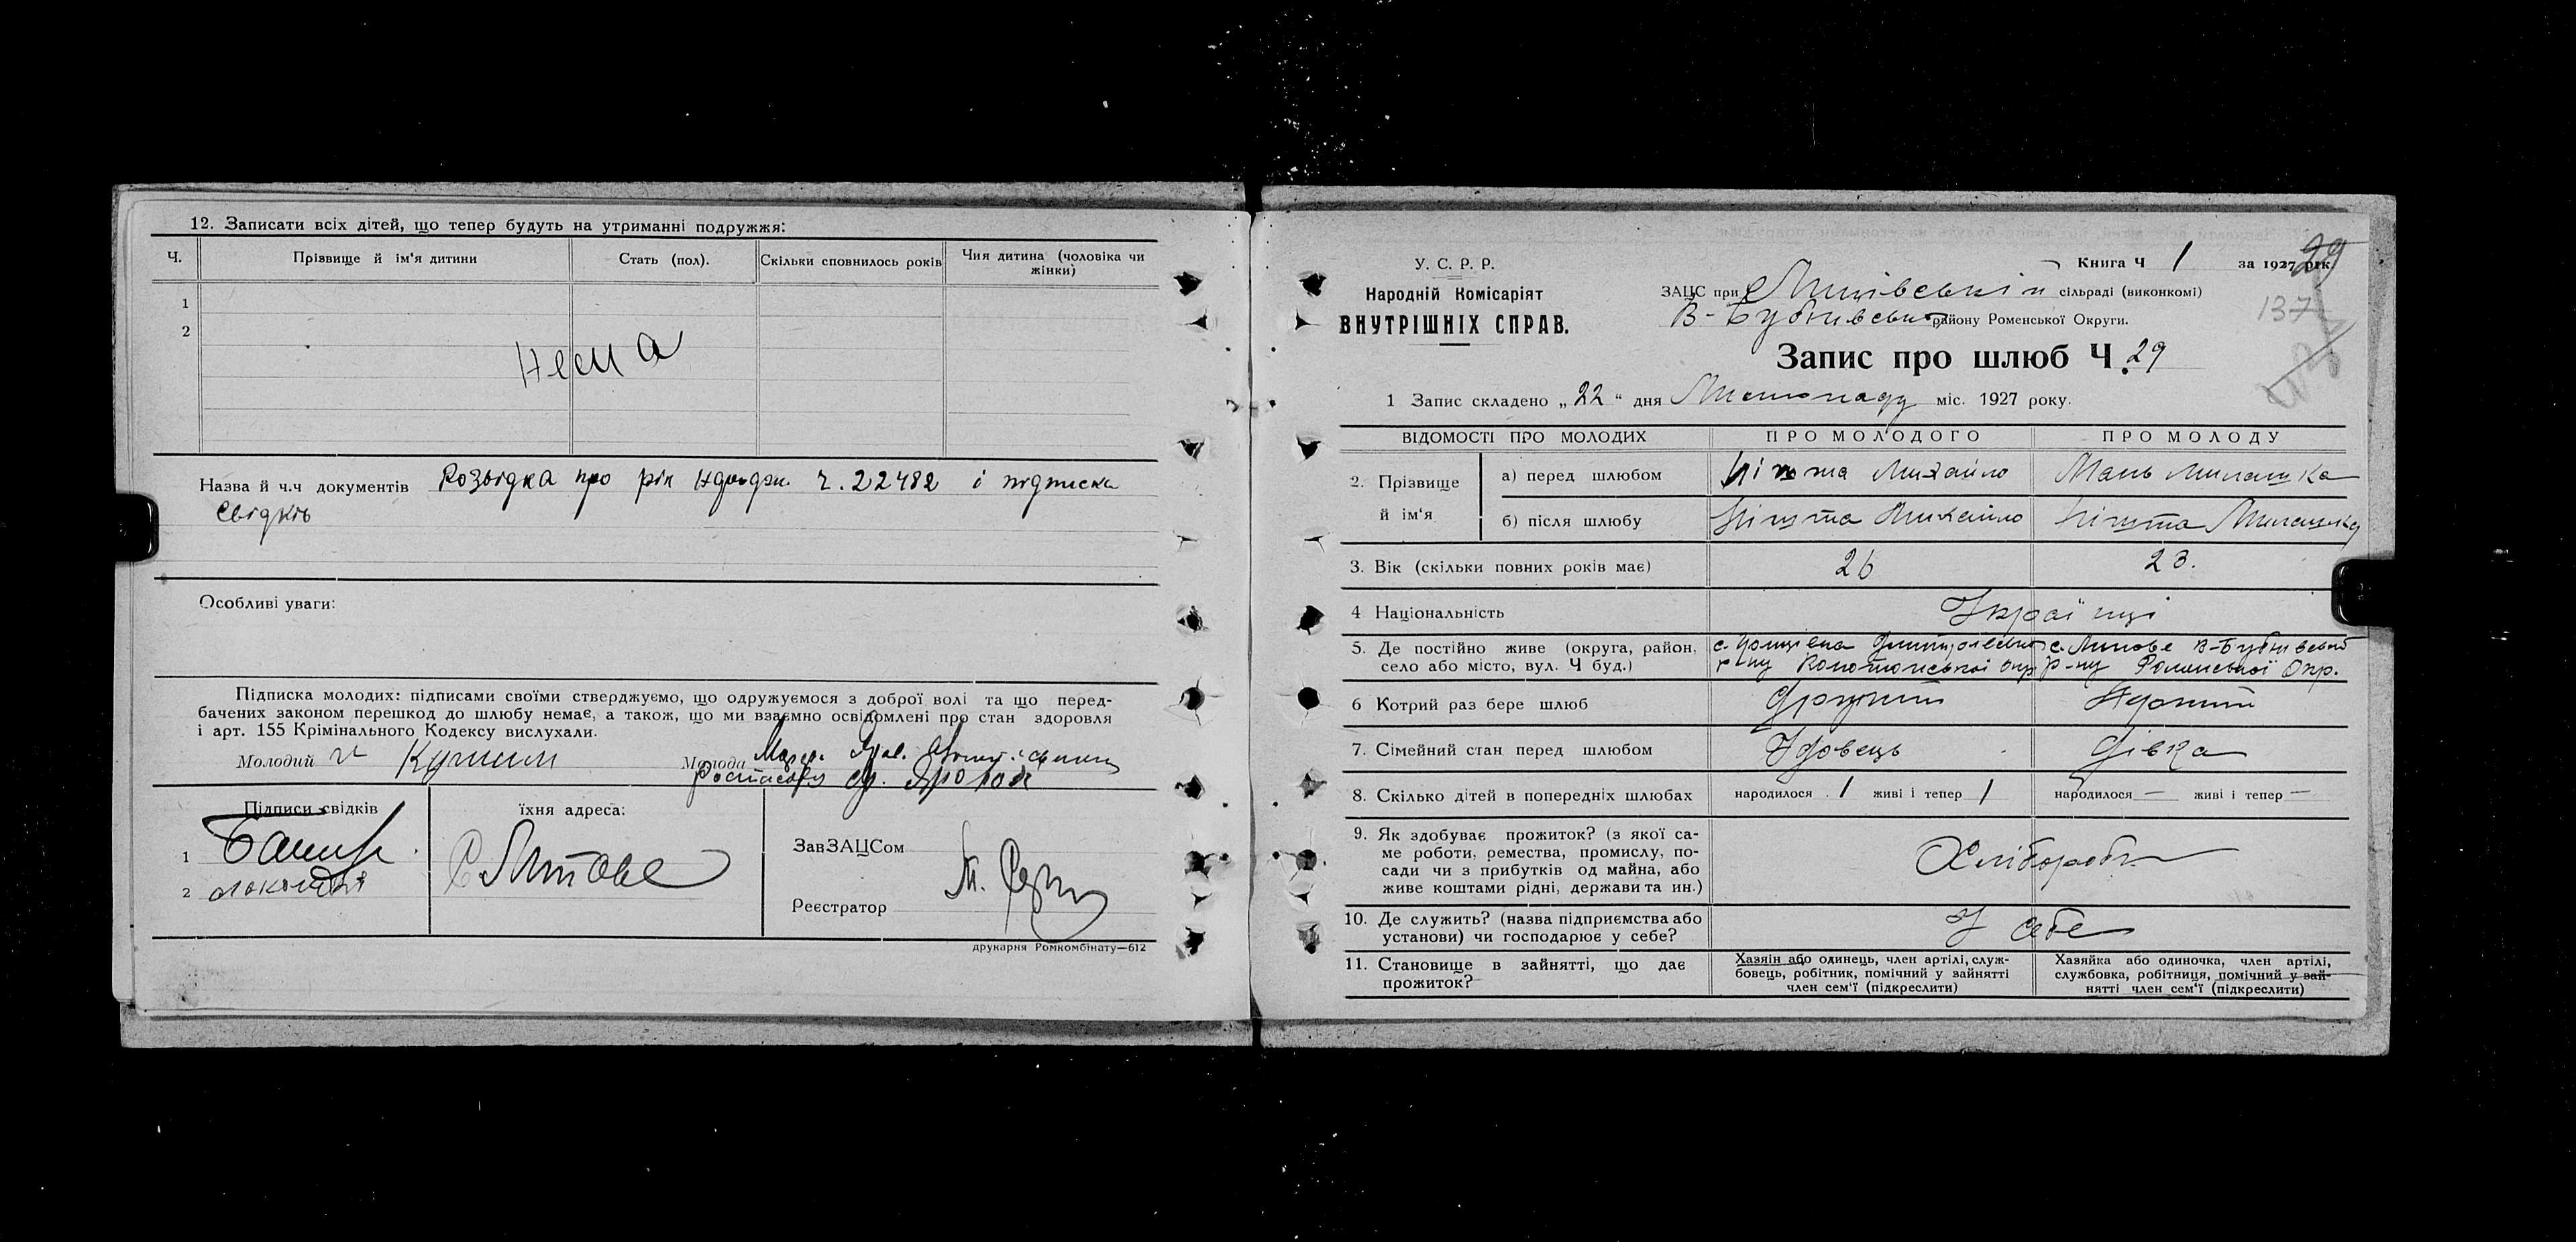 12. Записати всіх дітей, що тепер будуть на утриманні подружжя:
Ч. Прізвище й ім'я дитини Стать (пол). Скільки сповнилось років Чия дитина (чоловіка чи жінки)
1
2
Нема
Назва й ч.ч документів Розвідка про рік Народж. ч. 22482 і підписка
Свідків
Особливі уваги:
Підписка молодих: підписами своїми стверджуємо, що одружуємося з доброї волі та що перед-
бачених законом перешкод до шлюбу немає, а також, що ми взаємно освідомлені про стан здоровля
і арт. 155 Крімінального Кодексу вислухали.
Молодий Молода
Підписи свідків їхня адреса:
1
2
С Липове
ЗавЗАЦСом
Реєстратор
друкарня Ромкомбінату—612
У. С. Р. Р.
Народній Комісаріят
ВНУТРІШНІХ СПРАВ.
Книга Ч 1 за 1927 рік
29
137
ЗАЦС при Липівській сільраді (виконкомі)
В-Бубнівського району Роменської Округи.
Запис про шлюб Ч. 29
1 Запис складено „22“ дня Листопаду міс. 1927 року.
ВІДОМОСТІ ПРО МОЛОДИХ ПРО МОЛОДОГО ПРО МОЛОДУ
2. Прізвище й ім'я
а) перед шлюбом Михайло Милашка
б) після шлюбу Михайло Милашка
3. Вік (скільки повних років має) 26 23.
4 Національність Українці
5. Де постійно живе (округа, район, село або місто, вул. Ч буд.)
р-ну Конотопської Окр
с. Липове В-Бубнівськ
р-ну Роменської Окр.
6 Котрий раз бере шлюб Другий Перший
7. Сімейний стан перед шлюбом Удовець Дівка
8. Скілько дітей в попередніх шлюбах народилося 1 живі і тепер 1 народилося — живі і тепер —
9. Як здобуває прожиток? (з якої са-
ме роботи, ремества, промислу, по-
сади чи з прибутків од майна, або
живе коштами рідні, держави та ин.)
Хлібороби
10. Де служить? (назва підприємства або
установи) чи господарює у себе?
У себе
11. Становище в зайнятті, що дає
прожиток?
Хазяін або одинець, член артілі, служ-
бовець, робітник, помічний у зайнятті
член сем'ї (підкреслити)
Хазяйка або одиночка, член артілі,
службовка, робітниця, помічний у зай-
нятті член сем'ї (підкреслити)